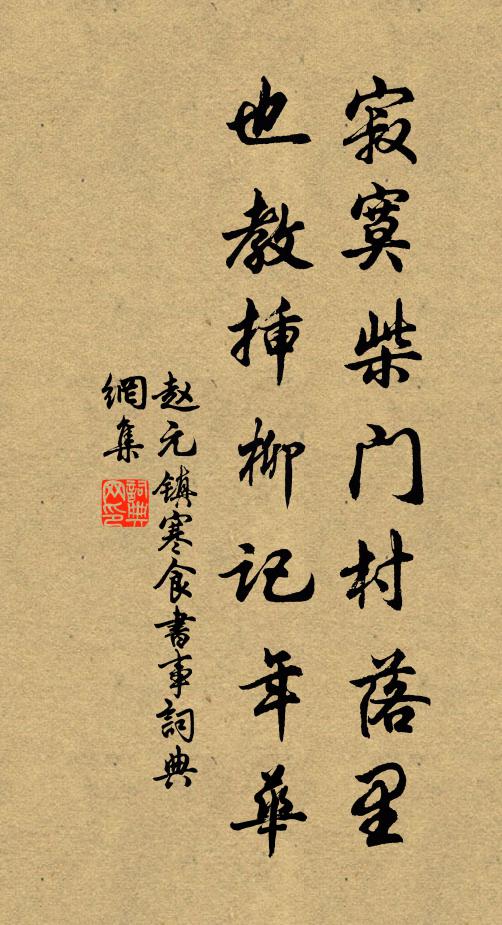 寂寞柴门村落里
也教插柳记年华
赵元镇寒食書事詞典
網集
詞典
网印